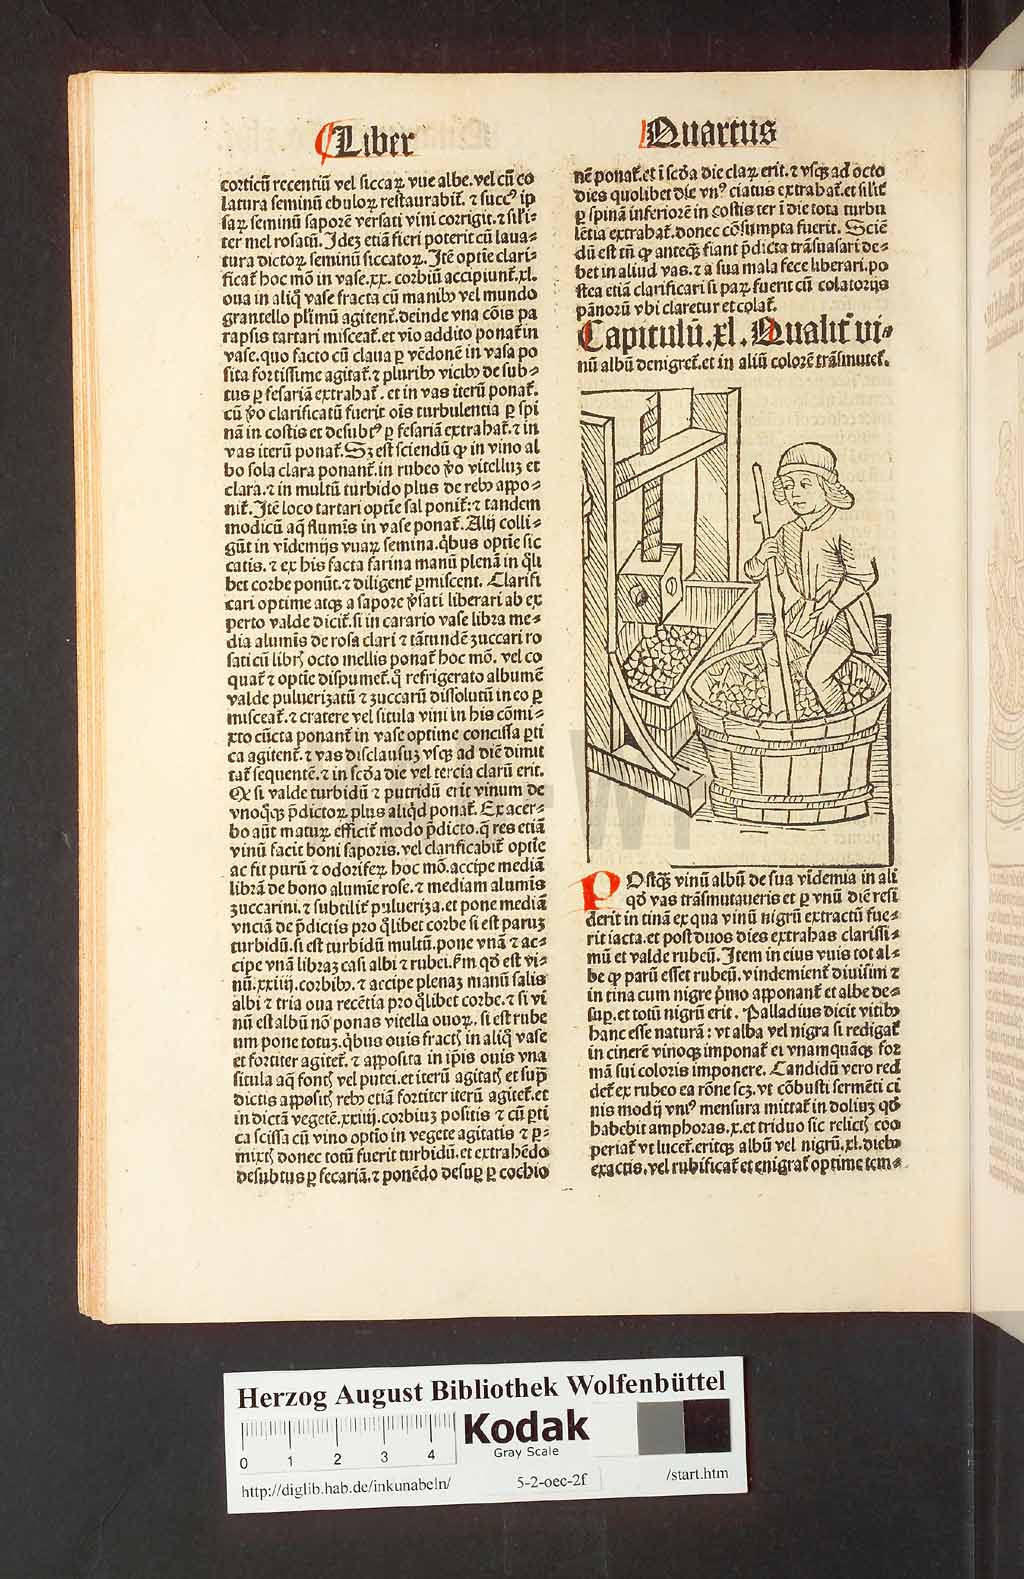 Liber
corticū recentiū vel siccaꝝ vue albe. vel cū co
latura seminū ebuloꝝ restaurabit᷑. ⁊ succꝰ ip
saꝝ seminū saporē versati vini corrigit. ⁊ sili-
ter mel rosatū. Ideꝫ etiā fieri poterit cū laua-
tura dictoꝝ seminū siccatoꝝ. Itē optie clari-
ficat᷑ hoc mō in vase .xx. corbiū accipiunt᷑ .xl.
oua in aliq̄ vase fracta cū manibꝰ vel mundo
grantello plīmū agitent᷑. deinde vna cōis pa
rapsis tartari misceat᷑. et vīo addito ponat᷑ in
vase. quo facto cū claua ꝑ vēdonē in vasa po
sita fortissime agitat᷑. ⁊ pluribꝰ vicibꝰ de sub-
tus ꝑ fesariā extrahat᷑. et in vas iterū ponat᷑.
cū ꝟo clarificatū fuerit oīs turbulentia ꝑ spi
nā in costis et desubtꝰ ꝑ fesariā extrahat᷑. ⁊ in
vas iterū ponat᷑. Sꝫ est sciendū ꝙ in vino al
bo sola clara ponant᷑. in rubeo ꝟo vitellꝫ et
clara. ⁊ in multū turbido plus de rebꝰ appo-
nit᷑. Itē loco tartari optie sal ponit᷑: ⁊ tandem
modicū aq̄ flumīs in vase ponat᷑. Alij colli-
gūt in vīdemijs vuaꝝ semina. q̄bus optie sic
catis. ⁊ ex his facta farina manū plenā in q̄li
bet corbe ponūt. ⁊ diligent᷑ ꝑmiscent. Clarifi
cari optime atqꝫ a sapore ꝟsati liberari ab ex
perto valde dicit᷑. si in carario vase libra me-
dia alumīs de rosa clari ⁊ tātundē zuccari ro
sati cū libꝝ octo mellis ponat᷑ hoc mō. vel co
quat᷑ ⁊ optie dispumet᷑. q̄ refrigerato albumē
valde puluerizatū ⁊ zuccarū dissolutū in eo ꝑ
misceat᷑. ⁊ cratere vel situla vini in his cōmi-
xto cūcta ponant᷑ in vase optime concissa ꝑti
ca agitent᷑. ⁊ vas disclausuꝫ vsqꝫ ad diē dimit
tat᷑ sequentē. ⁊ in scďa die vel tercia clarū erit.
Qꝫ si valde turbidū ⁊ putridū erit vinum de
vnoq̄qꝫ p̄dictoꝝ plus aliq̄d ponat᷑. Ex acer-
bo aūt matuꝝ efficit᷑ modo p̄dicto. q̄ res etiā
vinū facit boni saporis. vel clarificabit᷑ optie
ac fit purū ⁊ odorifeꝝ hoc mō. accipe mediā
librā de bono alumīe rose. ⁊ mediam alumīs
zuccarini. ⁊ subtilit᷑ pulueriza. et pone mediā
vnciā de p̄dictis pro q̄libet corbe si est paruꝫ
turbidū. si est turbidū multū. pone vnā ⁊ ac-
cipe vnā libraꝫ casi albi ⁊ rubei. ẜm qď est vi-
nū .xxiiij. corbibꝰ. ⁊ accipe plenaꝫ manū salis
albi ⁊ tria oua recētia pro q̄libet corbe. ⁊ si vi
nū est albū nō ponas vitella ouoꝝ. si est rube
um pone totuꝫ. q̄bus ouis fractꝭ in aliq̄ vase
et fortiter agitet᷑. ⁊ apposita in ip̄is ouis vna
situla aq̄ fontꝭ vel putei. et iterū agitatꝭ et sup̄
dictis appositꝭ rebꝰ etiā fortiter iterū agitet᷑. et
in dictā vegetē .xxiiij. corbiuꝫ positis ⁊ cū ꝑti
ca scissa cū vino optio in vegete agitatis ⁊ ꝑ-
mixtꝭ donec totū fuerit turbidū. et extrahēdo
desubtus ꝑ fecariā. ⁊ ponēdo desuꝑ ꝑ cochio
Quartus
nē ponat᷑. et ī scďa die claꝝ erit. ⁊ vsqꝫ ad octo
dies quolibet die vnꝰ ciatus extrahat᷑. et silit᷑
ꝑ spinā inferiorē in costis ter ī die tota turbu
lētia extrahat᷑. donec cōsumpta fuerit. Sciē
dū est tn̄ ꝙ anteqꝫ fiant p̄dicta trāsuasari de-
bet in aliud vas. ⁊ a sua mala fece liberari. po
stea etiā clarificari si paꝝ fuerit cū colatorijs
pānorū vbi claretur et colat᷑.
Capitulū .xl. Qualit᷑ vi-
nū albū denigret᷑. et in aliū colorē trāsmutet᷑.
POstqꝫ vinū albū de sua vīdemia in ali
qď vas trāsmutaueris et ꝑ vnū diē resi
derit in tinā ex qua vinū nigrū extractū fue-
rit iacta. et post duos dies extrahas clarissi-
mū et valde rubeū. Item in eius vuis tot al-
be ꝙ parū esset rubeū. vindemient᷑ diuisim ⁊
in tina cum nigre p̄mo apponant᷑ et albe de-
suꝑ. et totū nigrū erit. Palladius dicit vitibꝰ
hanc esse naturā: vt alba vel nigra si redigat᷑
in cinerē vinoqꝫ imponat᷑ ei vnamquāqꝫ for
mā sui coloris imponere. Candidū vero red
det᷑ ex rubeo ea rōne scꝫ. vt cōbusti sermēti ci
nis modij vniꝰ mensura mittat᷑ in doliuꝫ qď
habebit amphoras .x. et triduo sic relictꝭ coo
periat᷑ vt lucet᷑. eritqꝫ albū vel nigrū .xl. diebꝰ
exactis. vel rubificat᷑ et enigrat᷑ optime tem-
Herzog August Bibliothek Wolfenbüttel
0 1 2 3 4
Kodak
Gray Scale
http://diglib.hab.de/inkunabeln/ 5-2-oec-2f /start.htm